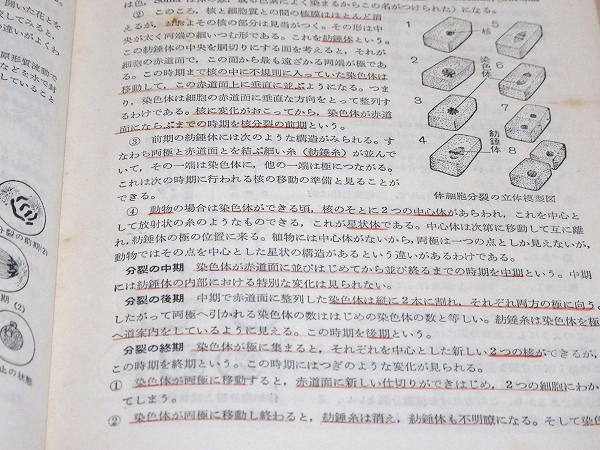 開いた花と
してみると、
の違いがよくわ
原形質流動で
などを水で封
していること
分裂の前期(2)
期 (2)
止の状態
② このころ，核と細胞質との間の核膜はほとんど消
えるが，なおよその核の部分は見当がつく。その形は中
央が太く両端の細いつむ形である。これを紡錘体という。
この紡錘体の中央を胴切りにする面を考えると，それが
細胞の赤道面で，この面から最も遠ざかる両端が極であ
る。この時期まで核の中に不規則に入っていた染色体は
移動して，この赤道面上に垂直に並ぶようになる。つま
り，染色体は細胞の赤道面に垂直な方向をとって整列す
るわけである。核に変化がおこってから，染色体が赤道
面にならぶまでの時期を核分裂の前期という。
③ 前期の紡錘体には次のような構造がみられる。す
なわち両極と赤道面とを結ぶ細い糸（紡錘糸）が並んで
いて，その一端は染色体に，他の一端は極につながる。
これは次の時期に行われる核の移動の準備と見ることが
できる。
1
2
3
4
5
6
7
8
核
染色体
紡錘体
体細胞分裂の立体模型図
④ 動物の場合は染色体ができる頃，核のそとに2つの中心体があらわれ，これを中心と
して放射状の糸のようなものできる，これが星状体である。中心体は次第に移動して互に離
れ，紡錘体の極の位置に来る。植物には中心体がないから，両極は一つの点としか見えないが，
動物ではその点を中心とした星状の構造があるという違いがあるわけである。
分裂の中期 染色体が赤道面に並びはじめてから並び終るまでの時期を中期という。中期
には紡錘体の内部における特別な変化は見られない。
分裂の後期 中期で赤道面に整列した染色体は縦に2本に割れ，それぞれ両方の極に向う。
したがって両極へ引かれる染色体の数ははじめの染色体の数と等しい。紡錘糸は染色体を極
へ道案内をしているように見える。この時期を後期という。
分裂の終期 染色体が極に集まると，それぞれを中心とした新しい2つの核ができるが，
この時期を終期という。この時期にはつぎのような変化が見られる。
① 染色体が両極に移動すると，赤道面に新しい仕切りができはじめ，2つの細胞にわか
てしまう。
② 染色体が両極に移動し終わると，紡錘糸は消え，紡錘体も不明瞭になる。そして染色